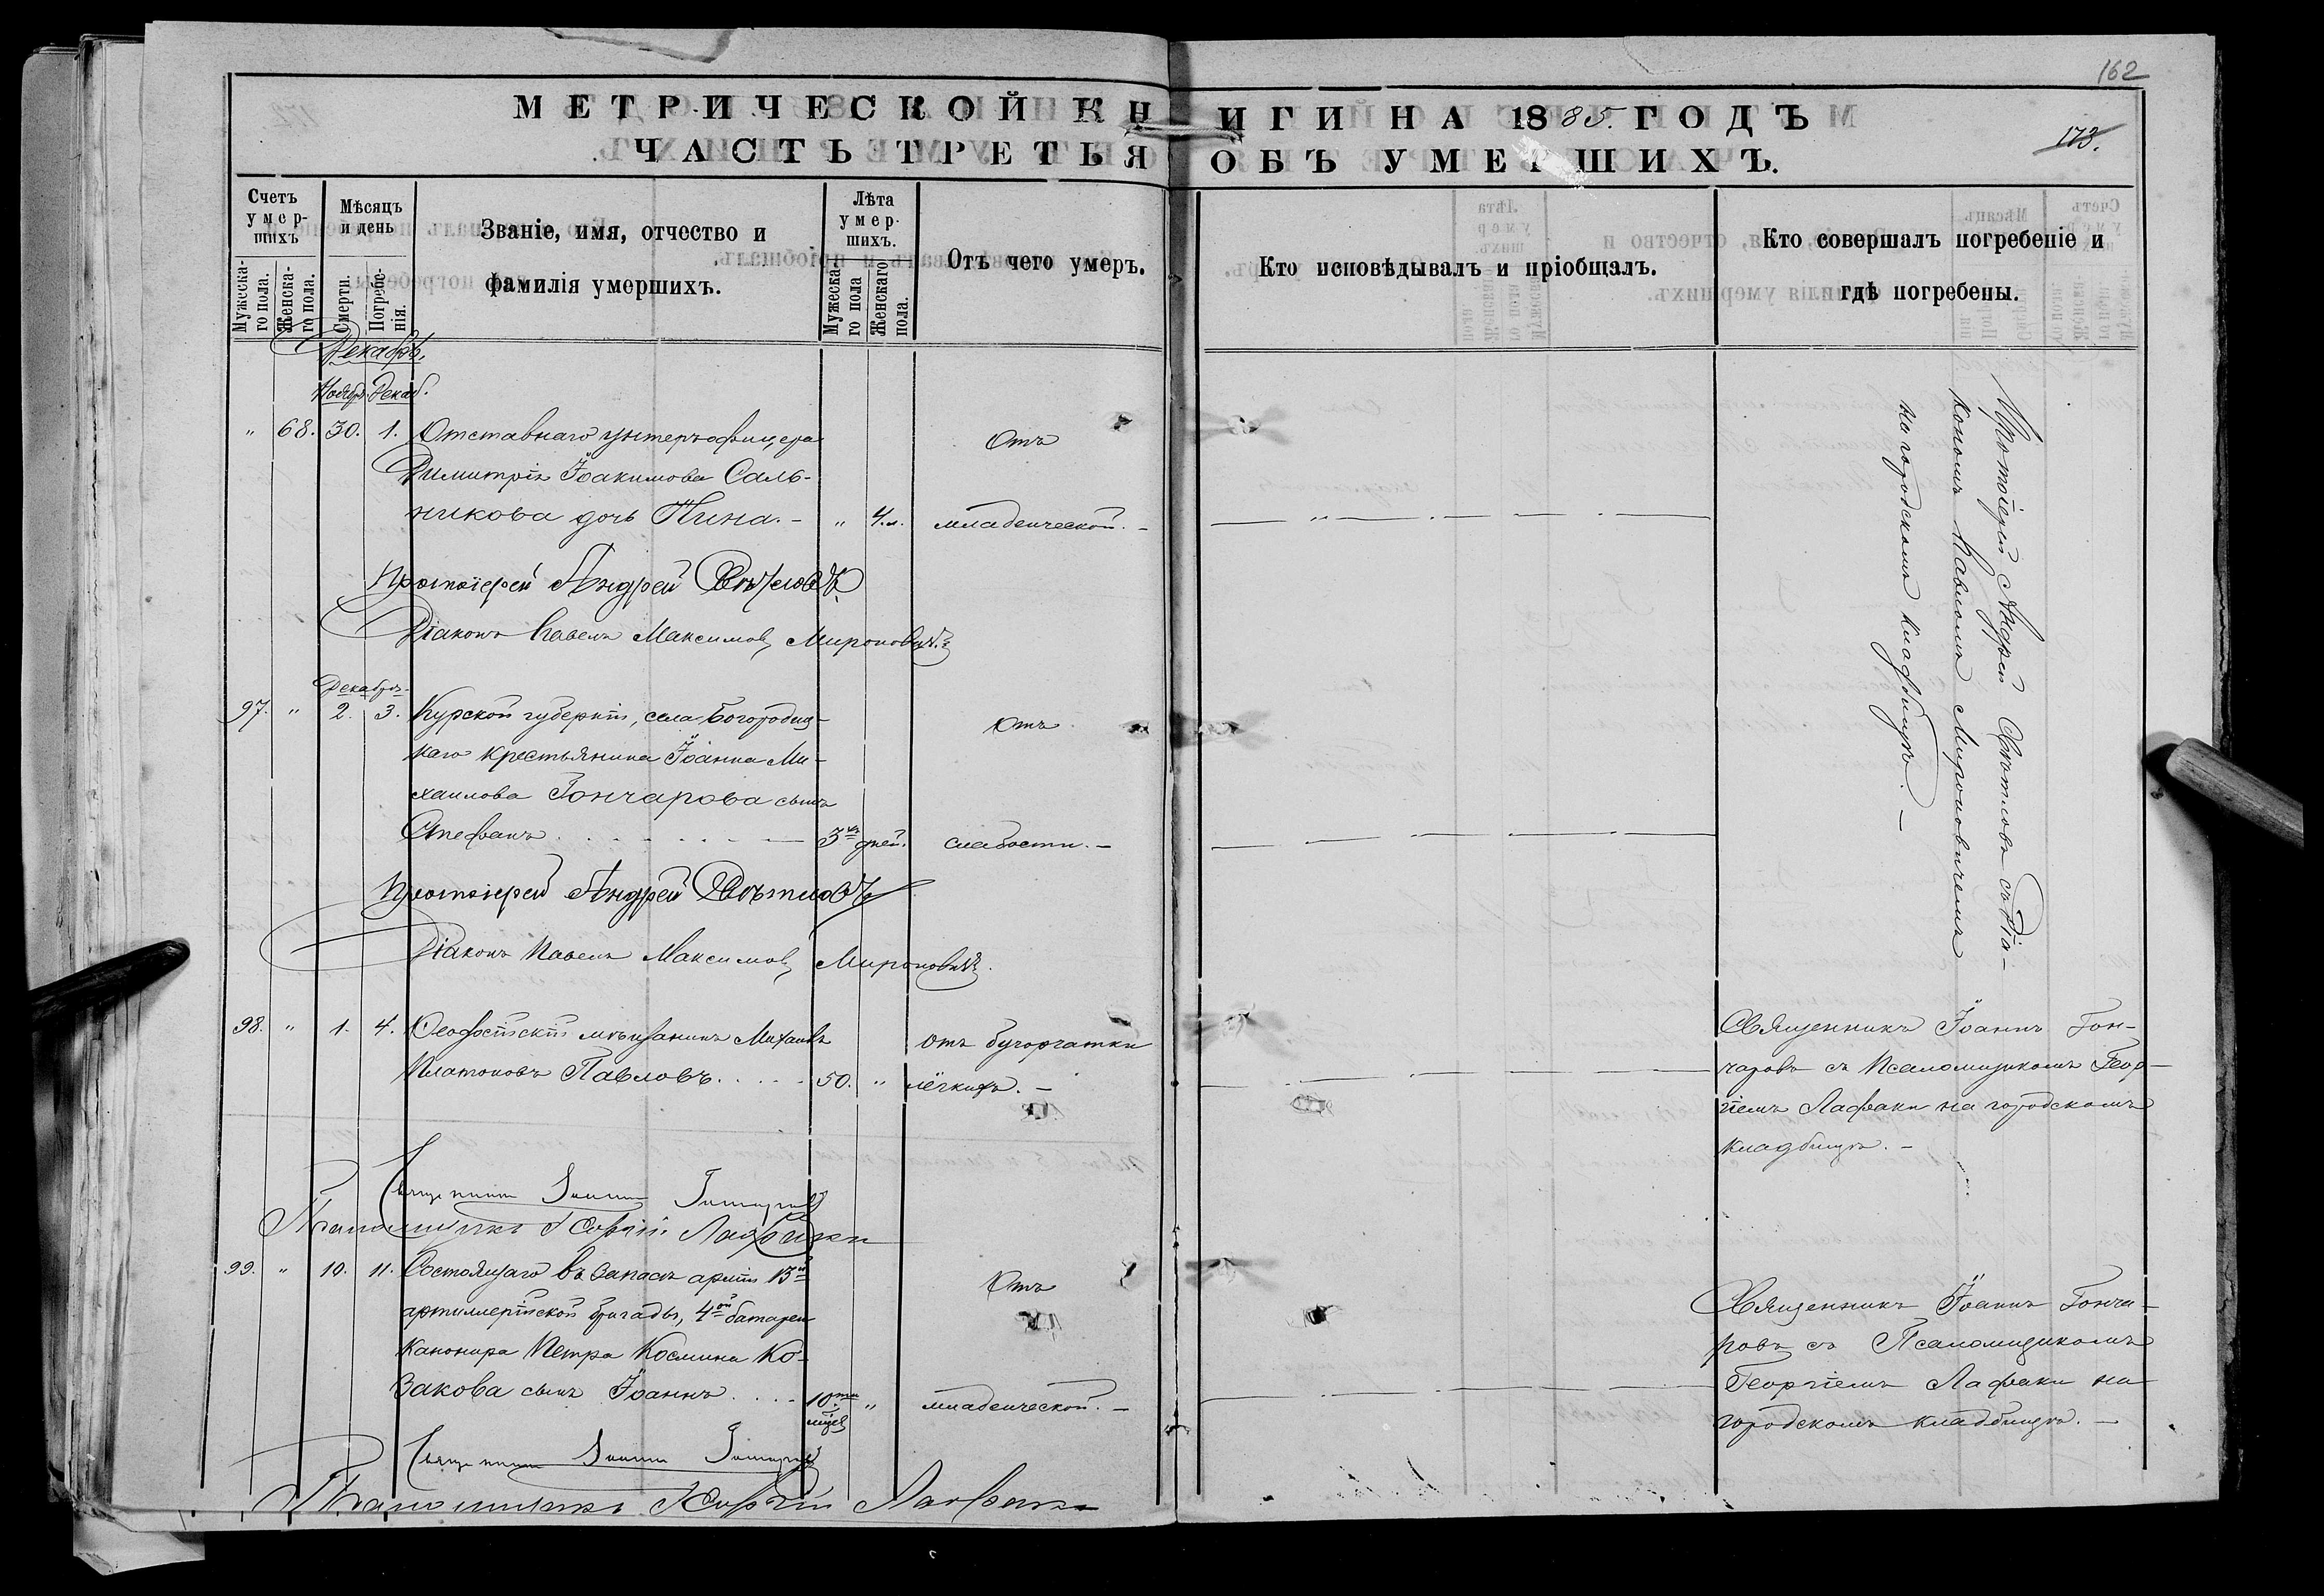 162
МЕТРИЧЕСКОЙ КНИГИ НА 1885. ГОДЪ
173.
ЧАСТЬ ТРЕТЬЯ ОБЪ УМЕРШИХЪ.
Счетъ умер-шихъ
Мужеска-го пола.
Женска-го пола.
Мѣсяцъ и день
Смерти.
Погребе-нія.
Званіе, имя, отчество и
фамилія умершихъ.
Лѣта умер-шихъ.
Мужеска-го пола
Женскаго пола.
Отъ чего умеръ.
Кто исповѣдывалъ и пріобщалъ.
Кто совершалъ погребеніе и
гдѣ погребены.
Декабрь.
Ноябр. Декаб.
" 68. 30. 1. Отставнаго унтеръ-офицера Отъ
Димитрія Іоакимова Саль-
никова дочь Нина. - " 4 м. младенческой. -
Протоіерей Андрей Свѣтловъ съ Діа-
кономъ Павломъ Мироновичемъ
на городскомъ кладбищѣ. -
Протоіерей Андрей Свѣтловъ
Діаконъ Павелъ Максимовъ Мироновичъ
Декабрь
97. " 2. 3. Курской губерніи, села Богородиц-
каго крестьянина Іоанна Ми-
хаилова Гончарова сынъ
Стефанъ 3хъ дней. Отъ слабости. -
Протоіерей Андрей Свѣтловъ
Діаконъ Павелъ Максимовъ Мироновичъ.
98. " 1. 4. Ѳеодосійскій мѣщанинъ Михаилъ
Платоновъ Павловъ. 50. " отъ бугорчатки
лёгкихъ. -
Священникъ Іоаннъ Гон-
чаровъ съ Псаломщикомъ Геор-
гіемъ Лафаки на городскомъ
кладбищѣ. -
Священникъ Іоаннъ Гончаровъ
Псаломщикъ Георгій Лафаки
99. " 10. 11. Состоящаго въ запасѣ арміи 13й
артиллерійской бригады, 4ой батареи
канонира Петра Космина Ко-
закова сынъ Іоаннъ 10ти мцев " Отъ
младенческой. -
Священникъ Іоаннъ Гонча-
ровъ съ Псаломщикомъ
Георгіемъ Лафаки на
городскомъ кладбищѣ. -
Священникъ Іоаннъ Гончаровъ
Псаломщикъ Георгій Лафаки